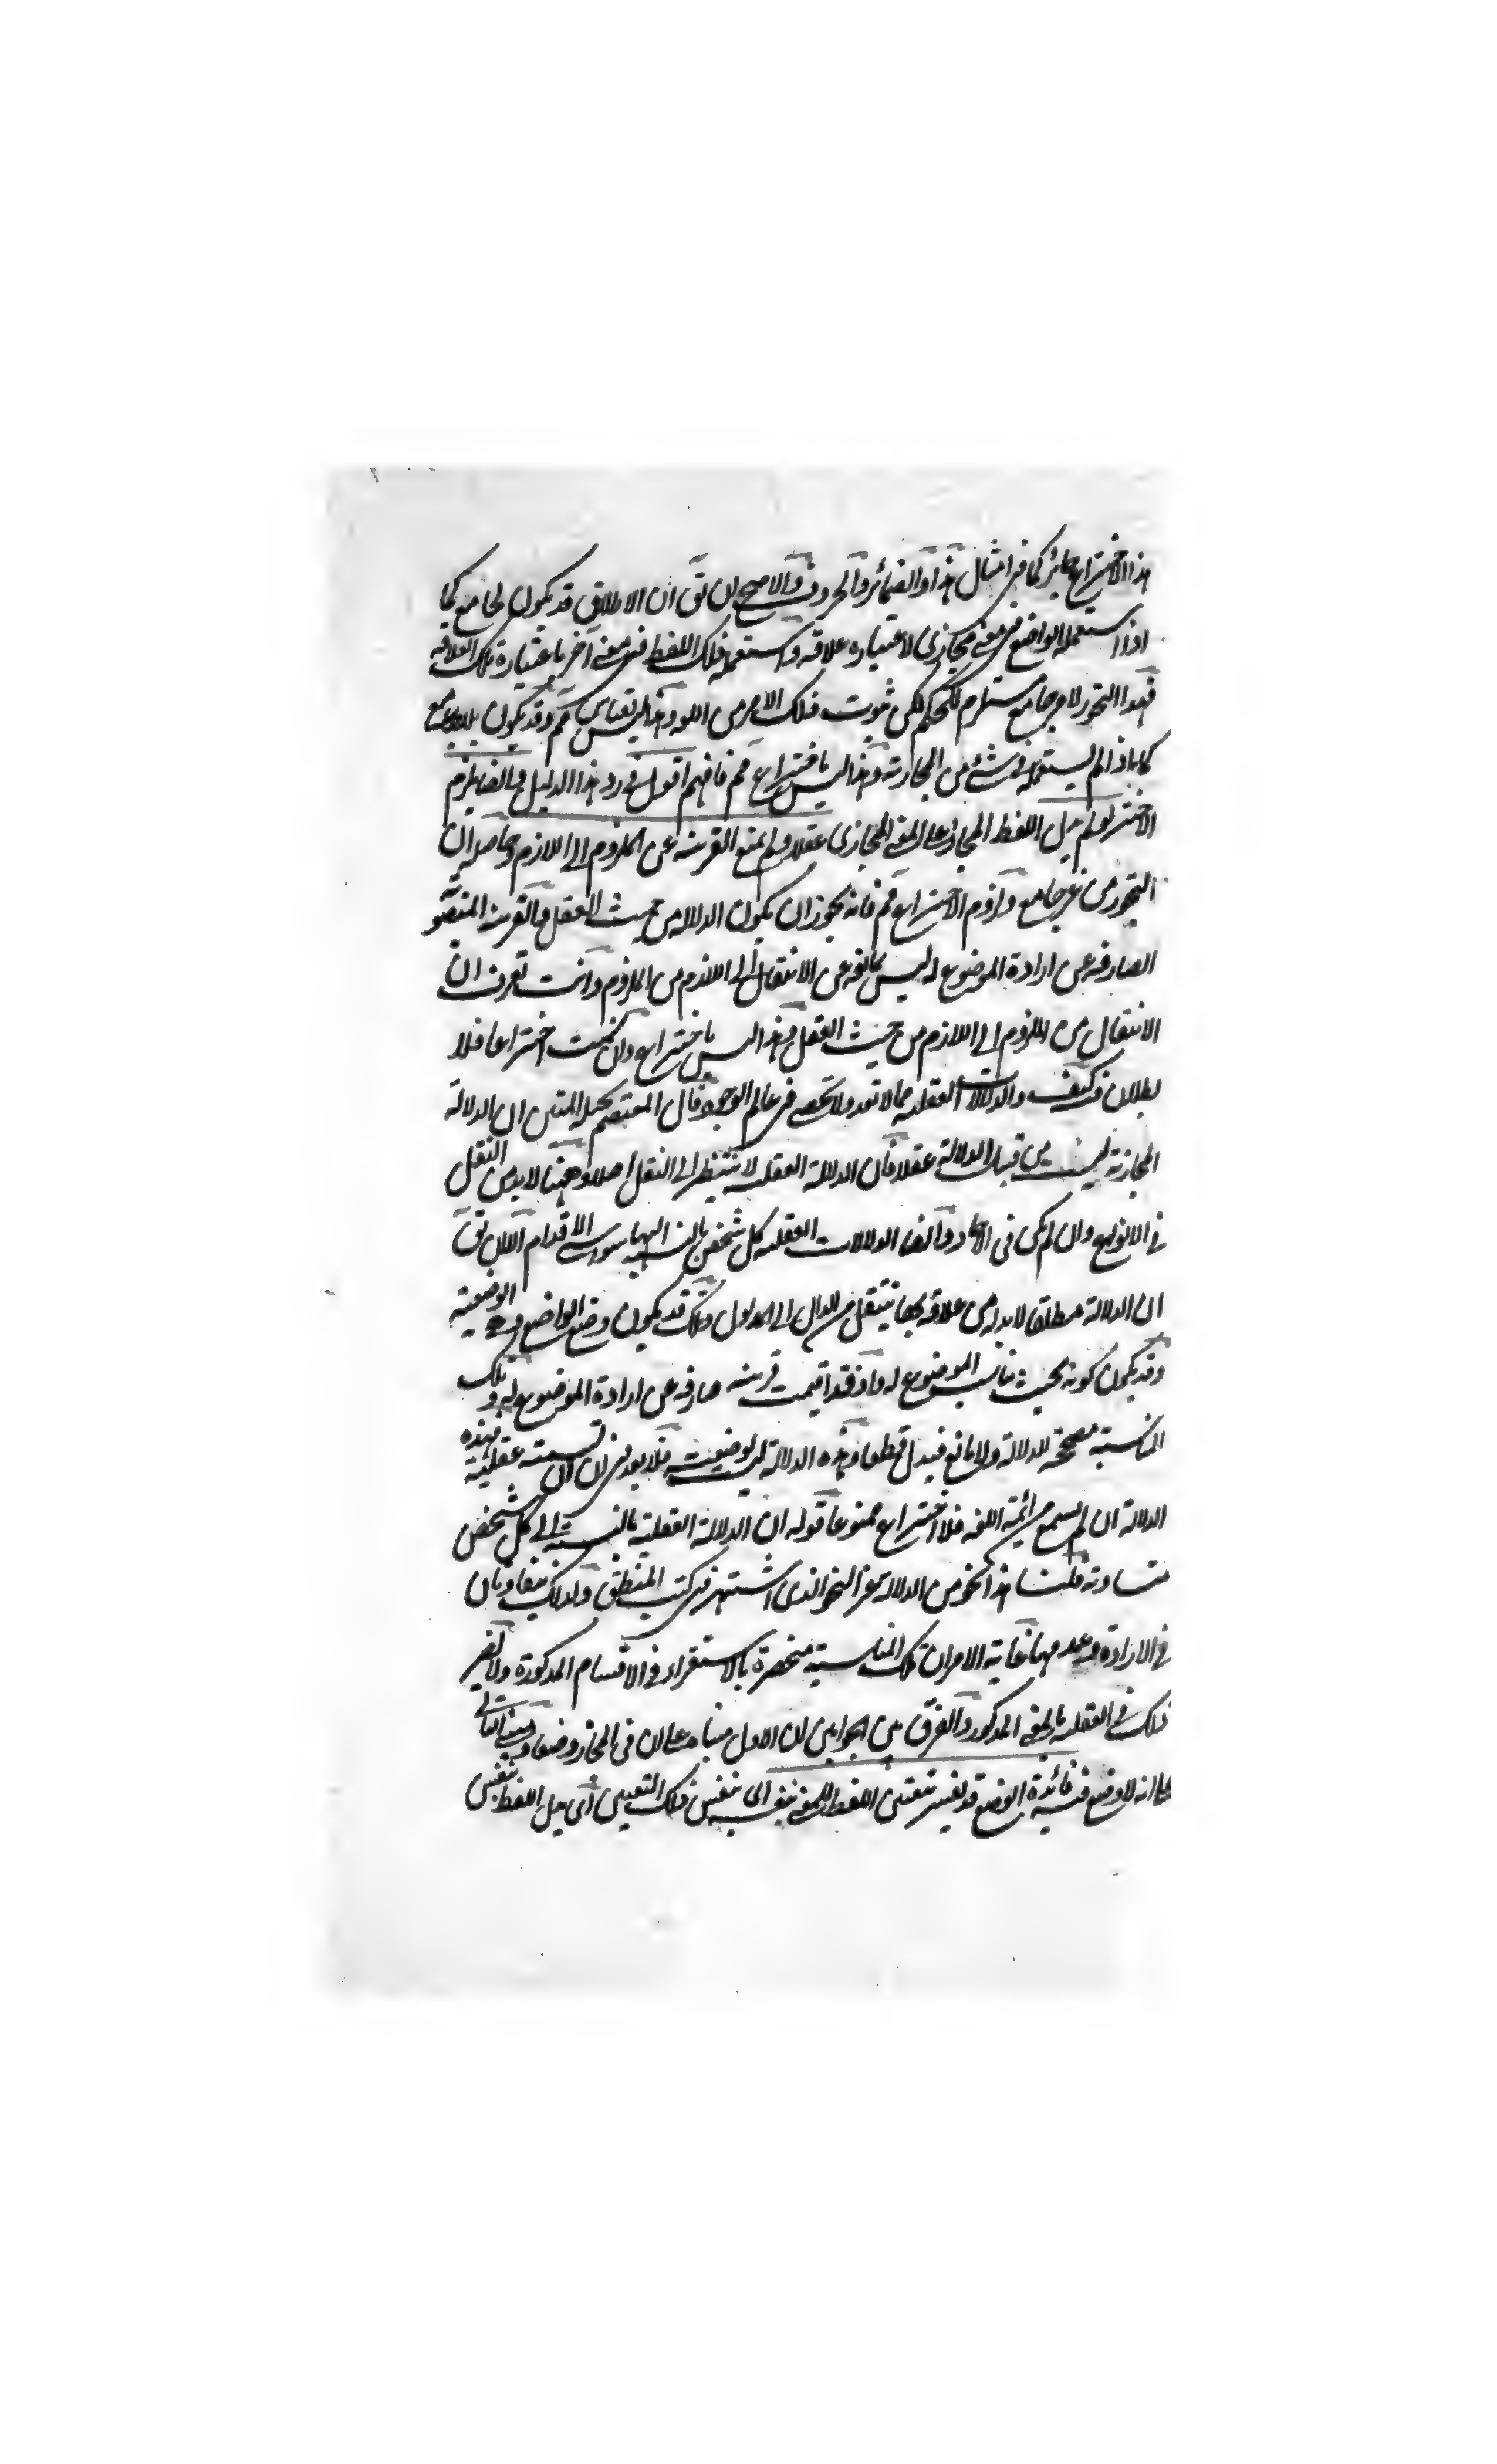 هذا الاختراع جائز كما فى امثال هذا والضمائر والحروف والاصح ان يق ان الاطلاق قد يكون لجامع كما
اذا استعمله الواضع فى معنى مجازى لاعتباره علاقة واستعمل ذلك اللفظ فى معنى آخر باعتبار تلك العلاقة
فهذا التجوز لامر جامع مستلزم للحكم لكن ثبوت ذلك الامر من اللغة وهذا ليس بقياس مم وقد يكون بلا جامع
كما اذا لم يستعمله فى شئ من المجازية وهذا ليس باختراع مم فافهم اقول فى رد هذا الدليل وايضا يلزم
الاختراع لو لم يدل اللفظ المجازى على المعنى المجازى عقلا ولم يمنع القرينة عن الملزوم الى اللازم وحاصله ان
التجوز من غير جامع ولزوم الاختراع مم فانه يجوز ان يكون الدلالة من حيث العقل والقرينة المنصوبة
الصارفة عن ارادة الموضوع له ليس مانعة عن الانتقال الى اللازم من الملزوم وانت تعرف ان
الانتقال من الملزوم الى اللازم من حيث العقل وهذا ليس باختراع وان سميت اختراعا فلا
بطلان فيه كيف والدلالات العقلية مما لا تعد ولا تحصى فى عالم الوجود قال المعتصم بحبل المتين ان الدلالة
المجازية ليست من قبيل الدلالة عقلا فان الدلالة العقلية لا تنتظر الى النقل اصلا وههنا لا بد من النقل
فى الانواع وان لم يكن فى الآحاد وايضا الدلالات العقلية كل شخص بالنسبة اليها سواسى الاقدام الا ان يق
ان الدلالة مطلقا لا بد لها من علاقة بها ينتقل من الدال الى المدلول وتلك قد يكون وضع الواضع وهى الوضعية
وقد يكون كونه بحيث يناسب الموضوع له واذ قد اقيمت قرينة صارفة عن ارادة الموضوع له وتلك
المناسبة مصححة للدلالة ولا مانع فيدل قطعا وهذه الدلالة ليست لوضعية فلا بعد فى ان تسميته عقلية فهذه
الدلالة ان لم يسمع من ائمة اللغة فلا اختراع ممنوعا قوله ان الدلالة العقلية بالنسبة الى كل شخص
متساوية قلنا هذا نحو من الدلالة غير النحو الذى اشتهر فى كتب المنطق ولذلك يتفاوتان
فى الارادة وعدمها غاية الامر ان تلك المناسبة منحصرة بالاستقراء فى الاقسام المذكورة ولا يضر
ذلك فى العقلية بالمعنى المذكور والفرق بين الجوابين ان الاول مبناه على ان فى المجاز وضعا ومبنى الثانى
على انه لا وضع فيه فائدة الوضع قد يفسر بتعيين اللفظ للمعنى بنفسه اى بنفس ذلك التعيين اى يدل اللفظ بنفس